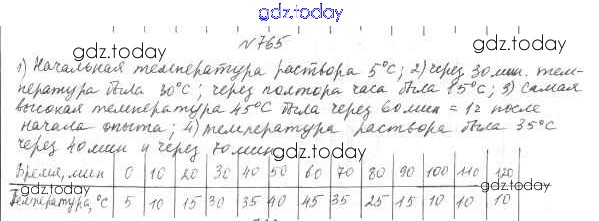 gdz.today
№765
gdz.today gdz.today
1) Начальная температура раствора 5°С; 2) через 30 мин. тем-
пература была 30°С; через полтора часа была 15°С; 3) самая
высокая температура 45°С была через 60 мин = 1ч после
начала опыта; 4) температура раствора была 35°С
через 40 мин и через 70 мин.
gdz.today gdz.today
Время, мин 0 10 20 30 40 50 60 70 80 90 100 110 120
Температура, °С 5 10 15 30 35 40 45 35 25 15 10 10 10
gdz.today